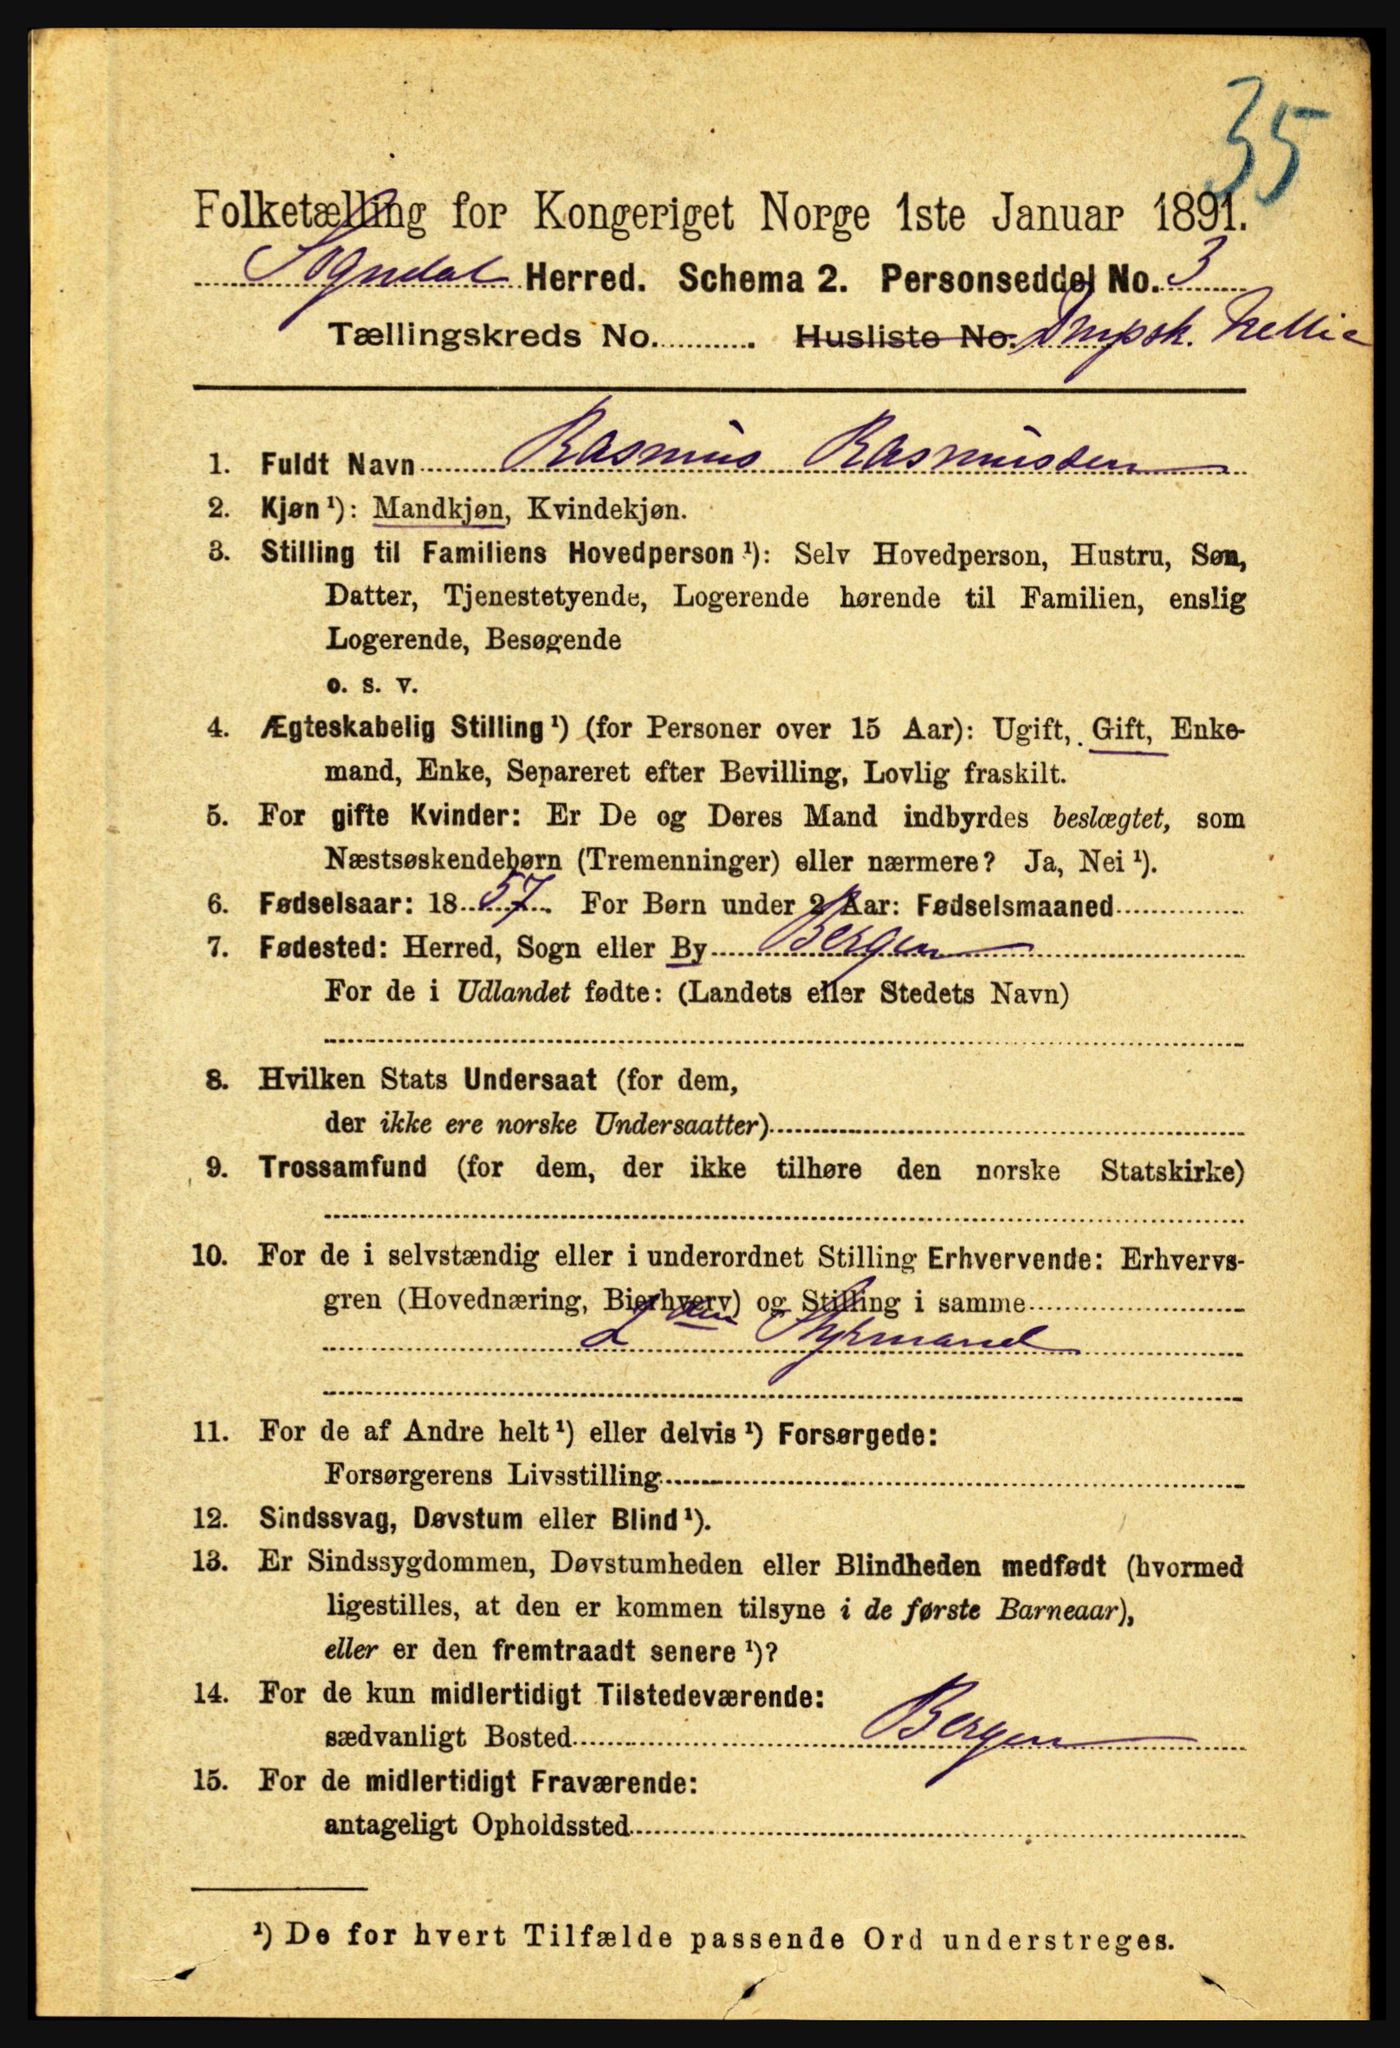 35
Folketælling for Kongeriget Norge 1ste Januar 1891.
Sogndal Herred. Schema 2. Personseddel No. 3
Tællingskreds No. ........... Husliste No. Dmpsk. Nellie
1. Fuldt Navn Rasmus Rasmussen
2. Kjøn ¹): Mandkjøn, Kvindekjøn.
3. Stilling til Familiens Hovedperson ¹): Selv Hovedperson, Hustru, Søn,
Datter, Tjenestetyende, Logerende hørende til Familien, enslig
Logerende, Besøgende
o. s. v.
4. Ægteskabelig Stilling ¹) (for Personer over 15 Aar): Ugift, Gift, Enke-
mand, Enke, Separeret efter Bevilling, Lovlig fraskilt.
5. For gifte Kvinder: Er De og Deres Mand indbyrdes beslægtet, som
Næstsøskendebørn (Tremenninger) eller nærmere? Ja, Nei ¹).
6. Fødselsaar: 18 57. For Børn under 2 Aar: Fødselsmaaned
7. Fødested: Herred, Sogn eller By Bergen
For de i Udlandet fødte: (Landets eller Stedets Navn)
8. Hvilken Stats Undersaat (for dem,
der ikke ere norske Undersaatter)
9. Trossamfund (for dem, der ikke tilhøre den norske Statskirke)
10. For de i selvstændig eller i underordnet Stilling Erhvervende: Erhvervs-
gren (Hovednæring, Bierhverv) og Stilling i samme
2den Styrmand
11. For de af Andre helt ¹) eller delvis ¹) Forsørgede:
Forsørgerens Livsstilling
12. Sindssvag, Døvstum eller Blind ¹).
13. Er Sindssygdommen, Døvstumheden eller Blindheden medfødt (hvormed
ligestilles, at den er kommen tilsyne i de første Barneaar),
eller er den fremtraadt senere ¹)?
14. For de kun midlertidigt Tilstedeværende:
sædvanligt Bosted Bergen
15. For de midlertidigt Fraværende:
antageligt Opholdssted
¹) De for hvert Tilfælde passende Ord understreges.